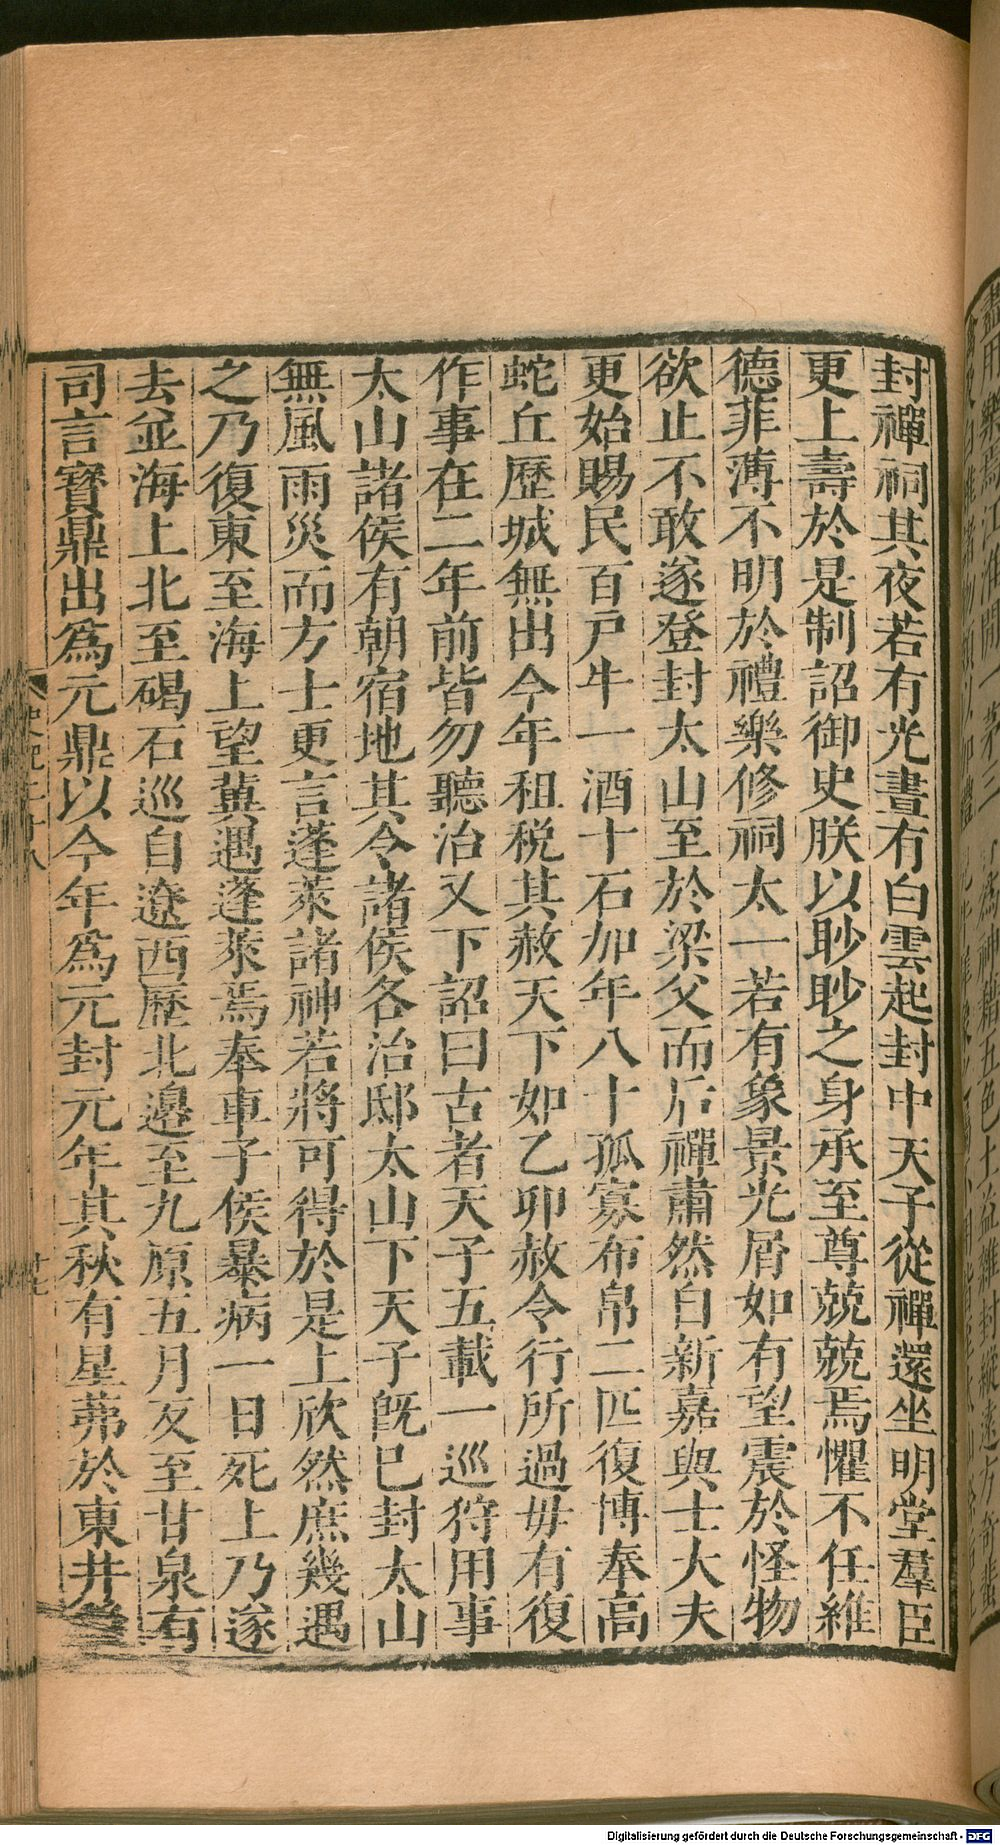 封禪祠其夜若有光晝有白雲起封中天子從禪還坐明堂羣臣
更上壽於是制詔御史朕以眇眇之身承至尊兢兢焉懼不任維
德菲薄不明於禮樂修祠太一若有象景光屑如有望震於怪物
欲止不敢遂登封太山至於梁父而后禪肅然自新嘉與士大夫
更始賜民百戶牛一酒十石加年八十孤寡布帛二匹復博奉高
蛇丘歷城無出今年租税其赦天下如乙卯赦令行所過毋有復
作事在二年前皆勿聽治又下詔曰古者天子五載一巡狩用事
太山諸侯有朝宿地其令諸侯各治邸太山下天子旣已封太山
無風雨災而方士更言蓬萊諸神若將可得於是上欣然庶幾遇
之乃復東至海上望冀遇蓬萊焉奉車子侯暴病一日死上乃遂
去並海上北至碣石巡自遼西歷北邉至九原五月反至甘泉有
司言寳鼎出爲元鼎以今年爲元封元年其秋有星茀於東井
史記二十八
廿七
Digitalisierung gefördert durch die Deutsche Forschungsgemeinschaft - DFG